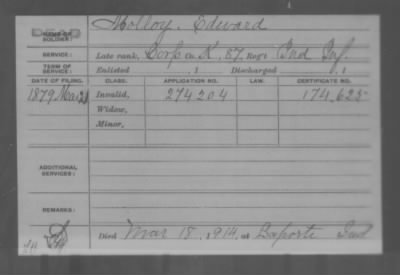 Molloy, Edward
NAME OF SOLDIER:
SERVICE: Late rank, Corp Co. K, 87, Reg't Ind Inf.
TERM OF SERVICE: Enlisted , 1 Discharged , 1
DATE OF FILING. CLASS. APPLICATION NO. LAW. CERTIFICATE NO.
1879 Mar. Invalid, 274204 174,625
Widow,
Minor,
ADDITIONAL SERVICES:
REMARKS:
Died Mar 18, 1914, at Laporte Ind